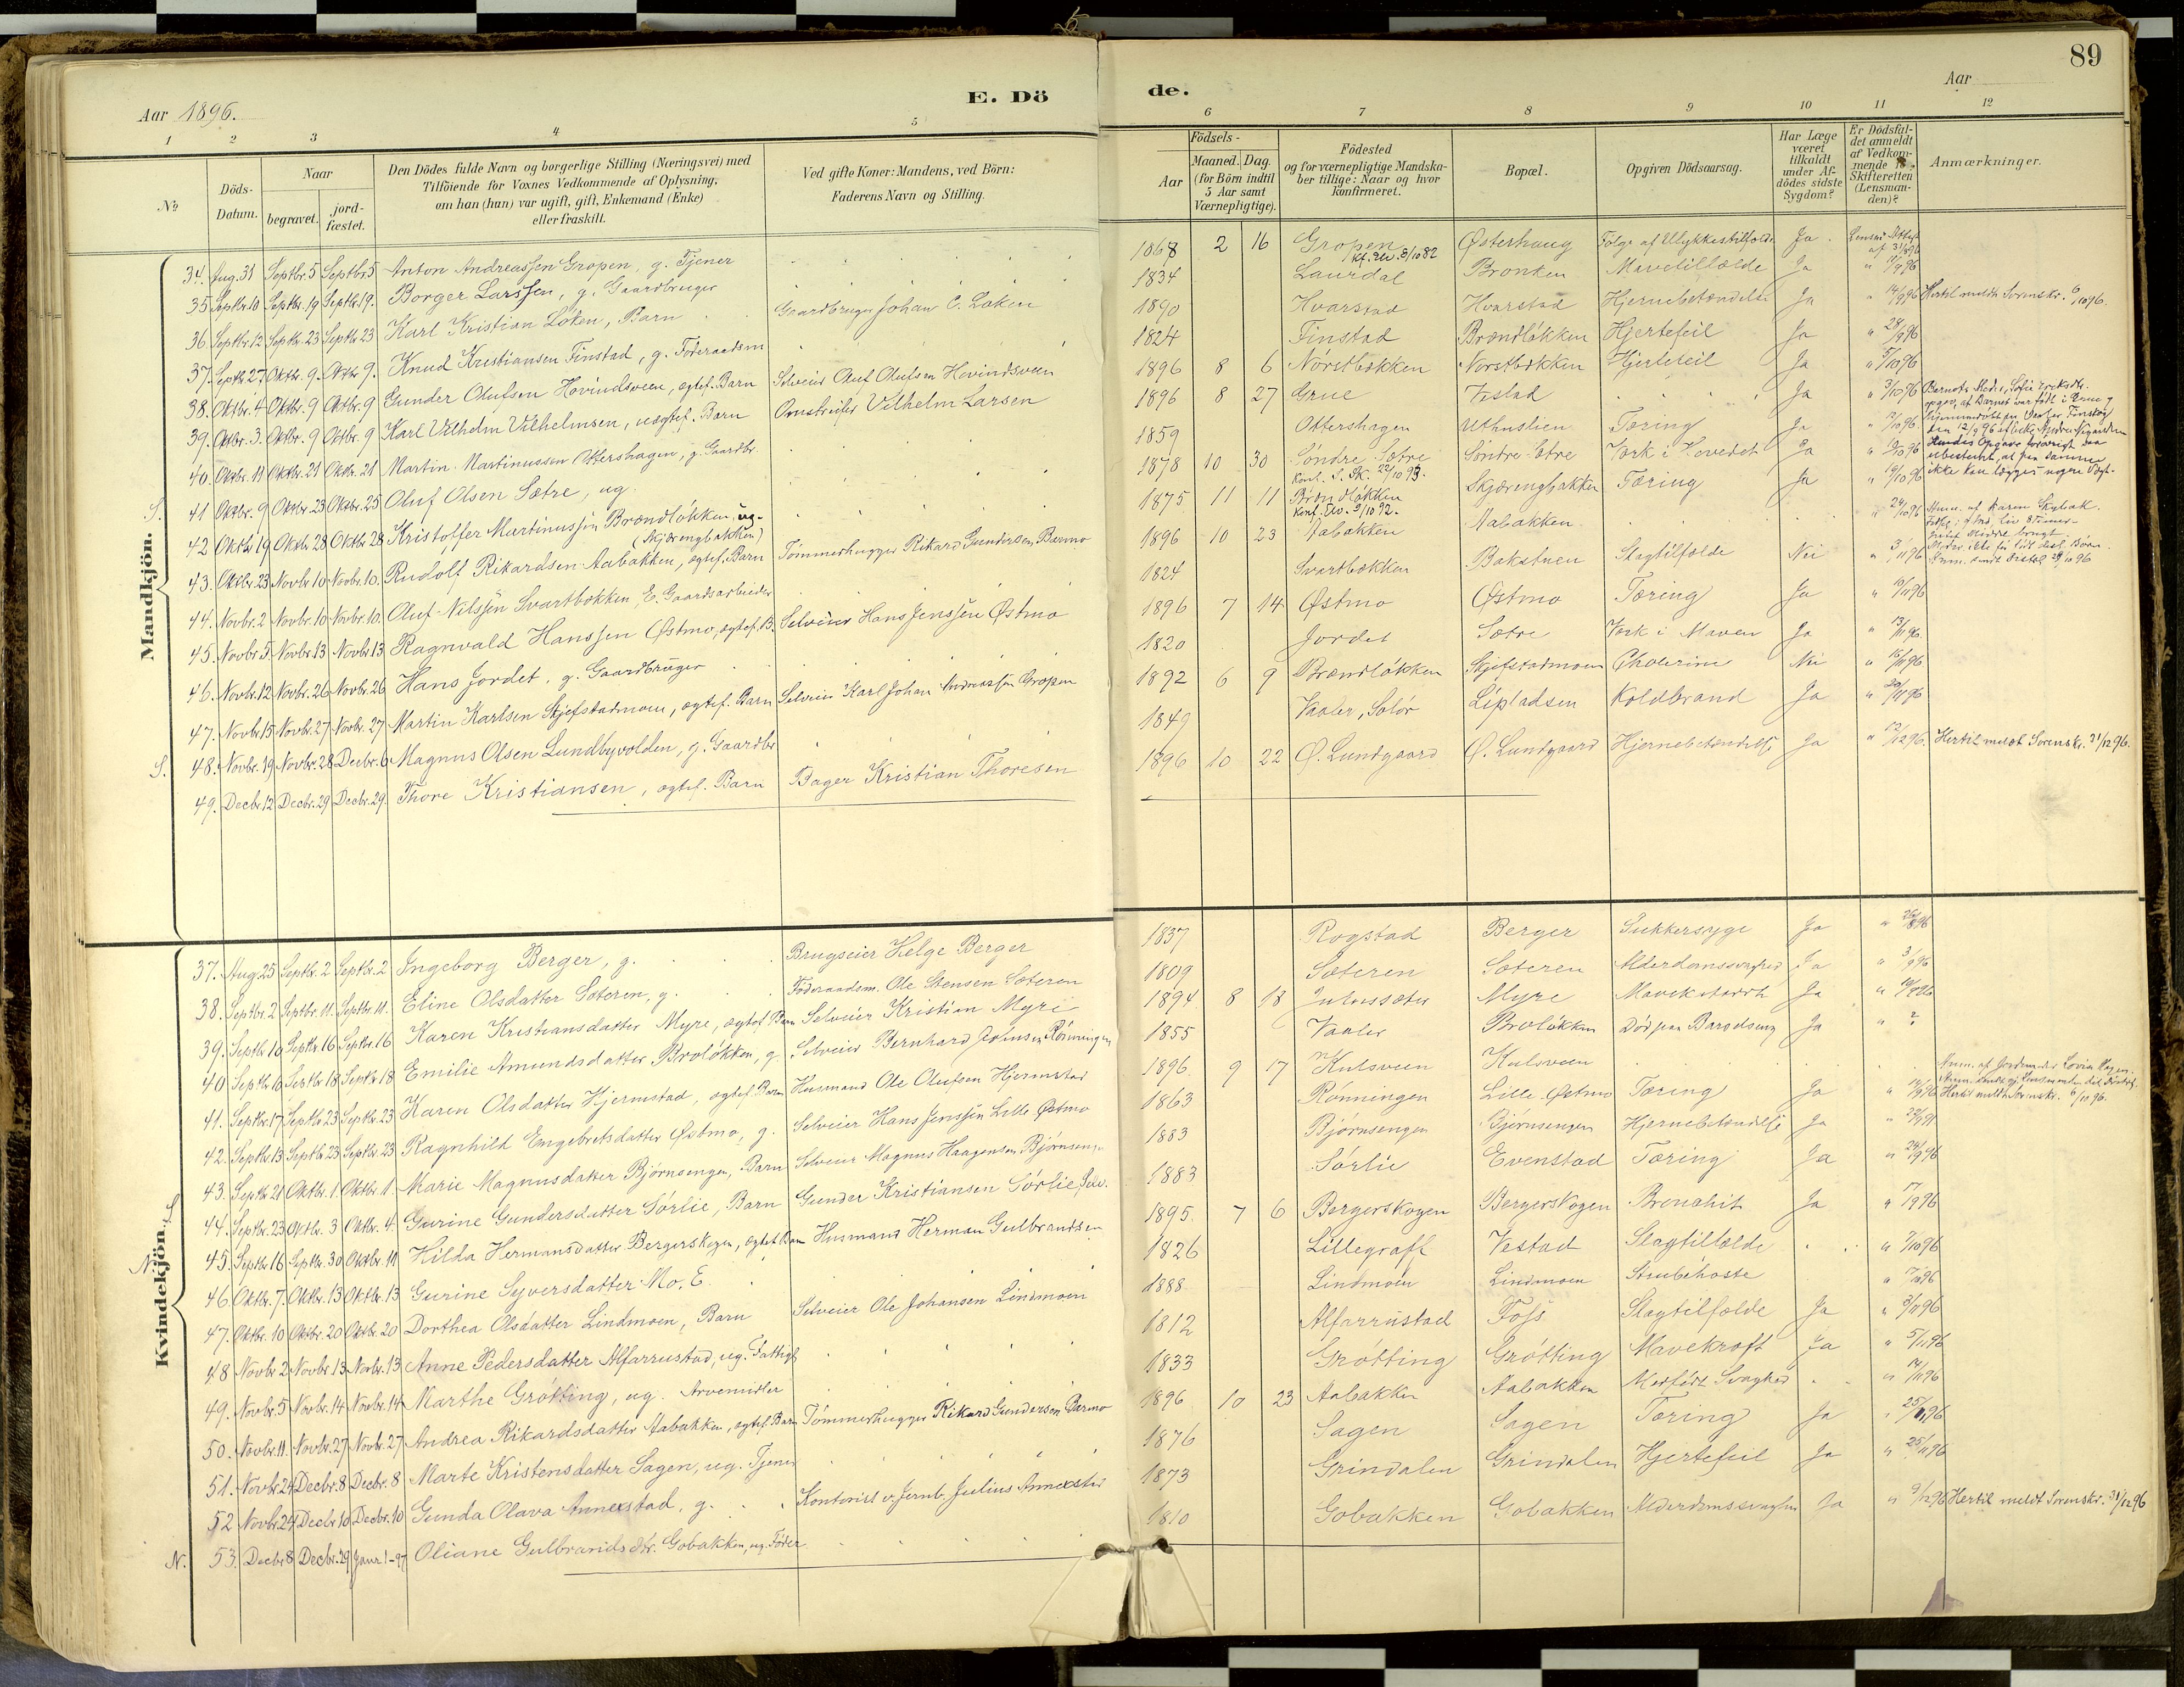 89
Aar 1896. E. Dö de. Aar
1 2 3 4 5 6 7 8 9 10 11 12
№
Döds-Datum.
Naar
begravet.
jord-fæstet.
Den Dödes fulde Navn og borgerlige Stilling (Næringsvei) med
Tilföiende for Voxnes Vedkommende af Oplysning,
om han (hun) var ugift, gift, Enkemand (Enke)
eller fraskilt.
Ved gifte Koner: Mandens, ved Börn:
Faderens Navn og Stilling.
Födsels-
Aar
Maaned. Dag.
(for Börn indtil
5 Aar samt
Værnepligtige).
Födested
og for værnepligtige Mandska-
ber tillige: Naar og hvor
konfirmeret.
Bopæl.
Opgiven Dödsaarsag.
Har Læge
været
tilkaldt
under Af-
dödes sidste
Sygdom?
Er Dödsfal-
det anmeldt
af Vedkom-
mende til
Skifteretten
(Lensman-
den)?
Anmærkninger.
Mandkjön.
34. Aug. 31 Septbr. 5 Septbr. 5 Anton Andreassen Gropen, g. Tjener 1868 2 16 Gropen Kf. Elv. 8/10 82 Østerhaug Følge af Ulykkestilfælde Ja. Lensm. Attest af 31/8 96
35. Septbr. 10 Septbr. 19 Septbr. 19. Borger Larssen, g. Gaardbruger 1834 Laurdal Bronken Mavetilfælde Ja
36. Septbr. 12 Septbr. 23 Septbr. 23 Karl Kristian Løken, Barn Gaardbruger Johan C. Løken 1890 Hvarstad Hvarstad Hjernebetændelse Ja " 14/9 96 Hertil meldt Sorenskr. 6/10 96.
37. Septbr. 27 Oktbr. 9. Oktbr. 9. Knud Kristiansen Finstad, g. Føderaadsm 1824 Finstad Brændløkken Hjertefeil Ja " 28/9 96
38. Oktbr. 4 Oktbr. 9 Oktbr. 9 Gunder Olufsen Hovindsveen, ægtef. Barn Selveier Oluf Olufsen Hovindsveen 1896 8 6 Nørstbækken Nørstbækken Hjertefeil Ja " 5/10 96
39. Oktbr. 3. Oktbr. 9 Oktbr. 9 Karl Vilhelm Vilhelmsen, uægtef. Barn Omstreifer Vilhelm Larsen 1896 8 27 Grue Vestad Ja " 3/10 96
40. Oktbr. 11 Oktbr. 21 Oktbr. 21 Martin Martinussen Ottershagen, g. Gaardbr. 1859 Ottershagen Uthuslien Tæring Ja
S. 41 Oktbr. 9 Oktbr. 23 Oktbr. 25 Oluf Olsen Sætre, ug. 1878 10 30 Søndre Sætre Konf. S. Sk. 22/10 93. Søndre Sætre Værk i Hovedet Ja
42 Oktbr. 19 Oktbr. 28 Oktbr. 28 Kristoffer Martinussen Brændløkken, ug. (Skjærengbakken) 1875 11 11 Brændløkken Konf. Elv. 9/10 92. Skjærengbakken Tæring Ja " 19/10 96
43. Oktbr. 23 Novbr. 10 Novbr. 10. Rudolf Rikardsen Aabakken, ægtef. Barn Tømmerhugger Rikard Gundersen Barmo 1896 10 23 Aabakken Aabakken " 24/10 96
44. Novbr. 2 Novbr. 10 Novbr. 10. Oluf Nilssen Svartbækken, E. Gaardsarbeider 1824 Svartbækken Bakstuen Slagtilfælde Nei " 3/11 96
45. Novbr. 5 Novbr. 13 Novbr. 13 Ragnvald Hanssen Østmo, ægtef. B. Selveier Hans Jenssen Østmo 1896 7 14 Østmo Østmo Tæring Ja " 10/11 96
46. Novbr. 12 Novbr. 26 Novbr. 26 Hans Jordet, g. Gaardbruger 1820 Jordet Sætre Værk i Maven Ja " 13/11 96
47. Novbr. 15 Novbr. 27 Novbr. 27 Martin Karlsen Skjefstadmoen, ægtef. Barn Selveier Karl Johan Andreassen Gropen 1892 6 9 Brændløkken Skjefstadmoen Cholerine Nei " 16/11 96
S. 48. Novbr. 19 Novbr. 28 Decbr. 6 Magnus Olsen Lundbyvolden, g. Gaardbr 1849 Vaaler, Solør Løpladsen Koldbrand Ja " 20/11 96
49. Decbr. 12 Decbr. 29 Decbr. 29. Thore Kristiansen, ægtef. Barn Bager Kristian Thoresen 1896 10 22 Ø. Lundgaard Ø. Lundgaard Hjernebetændelse Ja " 12/12 96. Hertil meldt Sorenskr. 31/12 96.
Kvindekjön.
37. Aug. 25 Septbr. 2 Septbr. 2 Ingeborg Berger, g. Brugseier Helge Berger 1837 Rogstad Berger Sukkersyge Ja " 26/8 96
38. Septbr. 2 Septbr. 11. Septbr. 11. Eline Olsdatter Sæteren, g. Føderaadsm. Ole Stensen Sæteren 1809 Sæteren Sæteren Alderdomssvaghed Ja " 3/9 96
39. Septbr. 10 Septbr. 16 Septbr. 16 Karen Kristiansdatter Myre, ægtef. Barn Selveier Kristian Myre 1894 8 18 Julussæter Myre Mavekatarrh Ja
40 Septbr. 10 Septbr. 18 Septbr. 18 Emilie Amundsdatter Broløkken, g. Selveier Bernhard Johnsen Rønningen 1855 Vaaler Broløkken Død paa Barselseng Ja " ?
41. Septbr. 17 Septbr. 23 Septbr. 23 Karen Olsdatter Hjermstad, ægtef. Barn Husmand Ole Olufsen Hjermstad 1896. 9 17 Kulsveen Kulsveen
42. Septbr. 13 Septbr. 23 Septbr. 23 Ragnhild Engebretsdatter Østmo, g. Selveier Hans Jenssen Lille Østmo 1863 Rønningen Lille Østmo Tæring Ja Hertil meldt Sorenskr. 6/10 96.
43. Septbr. 21 Oktbr. 1. Oktbr. 1. Marie Magnusdatter Bjørnsengen, Barn Selveier Magnus Haagensen Bjørnsengen 1883 Bjørnsengen Bjørnsengen Hjernebetændelse Ja
S. 44. Septbr. 23 Oktbr. 3 Oktbr. 4. Gurine Gundersdatter Sørlie, Barn Gunder Kristiansen Sørlie, Selv. 1883 Sørlie Evenstad Tæring Ja " 24/9 96
N. 45. Septbr. 16 Septbr. 30 Oktbr. 11 Hilda Hermansdatter Bergerskogen, ægtef. Barn Husmand Herman Gulbrandsen 1895. 7 6 Bergerskogen Bergerskogen Bronchit Ja " 17/9 96
46 Oktbr. 7. Oktbr. 13 Oktbr. 13 Gurine Syversdatter Mo. E. 1826 Lillegraff Vestad Slagtilfælde " 7/10 96
47. Oktbr. 10 Oktbr. 20 Oktbr. 20 Dorthea Olsdatter Lindmoen, Barn Selveier Ole Johansen Lindmoen 1888 Lindmoen Lindmoen Strubehoste
48 Novbr. 2 Novbr. 13 Novbr. 13 Anne Pedersdatter Alfarrustad, ug. Fattigl 1812 Alfarrustad Foss Slagtilfælde Ja " 3/11 96
49. Novbr. 5 Novbr. 14 Novbr. 14 Marthe Grøtting, ug. Arvemidler 1833 Grøtting Grøtting Mavekræft Ja " 5/11 96
50. Novbr. 11. Novbr. 27 Novbr. 27 Andrea Rikardsdatter Aabakken, ægtef. Barn Tømmerhugger Rikard Gundersen Barmo 1896 10 23 Aabakken Aabakken Medfødt Svaghed
51. Novbr. 24 Decbr. 8 Decbr. 8 Marte Kristensdatter Sagen, ug. Tjener 1876 Sagen Sagen Tæring Ja " 25/11 96
52 Novbr. 24 Decbr. 10 Decbr. 10 Gunda Olava Annexstad, g. Kontorist v. Jernb. Julius Annexstad 1873 Grindalen Grindalen Hjertefeil Ja " 25/11 96
N. 53. Decbr. 8 Decbr. 29 Janr. 1-97 Oliane Gulbrandsdtr. Gobakken, ug. Føder 1810 Gobakken Gobakken Alderdomssvaghed Ja " 9/12 96 Hertil meldt Sorenskr. 31/12 96